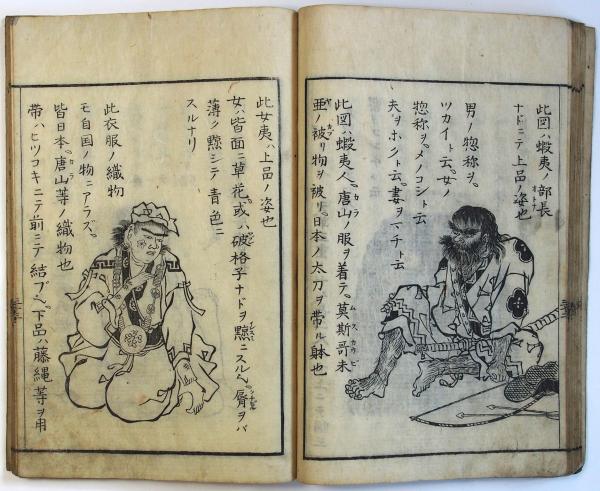 此図ハ蝦夷人ノ部長
ナドニテ上品ノ姿也
男ノ惣称ヲ
ツカイト云。女ノ
惣称ヲ。メノコシト云
夫ヲホクト云。妻ヲマチト云
此図ハ蝦夷人。唐山ノ服ヲ着テ。莫斯哥未
亜ノ被リ物ヲ被リ。日本ノ太刀ヲ帯ル躰也
此女夷ハ上品ノ姿也
女ハ皆面ニ草花。或ハ破格子ナドヲ黥ニスル。唇ヲバ
薄ク黥シテ青色ニ
スルナリ
此衣服ノ織物
モ自国ノ物ニアラズ。
皆日本。唐山等ノ織物也
帯ハヒツコキニテ前ニテ結ブ。下品ハ藤縄等ヲ用